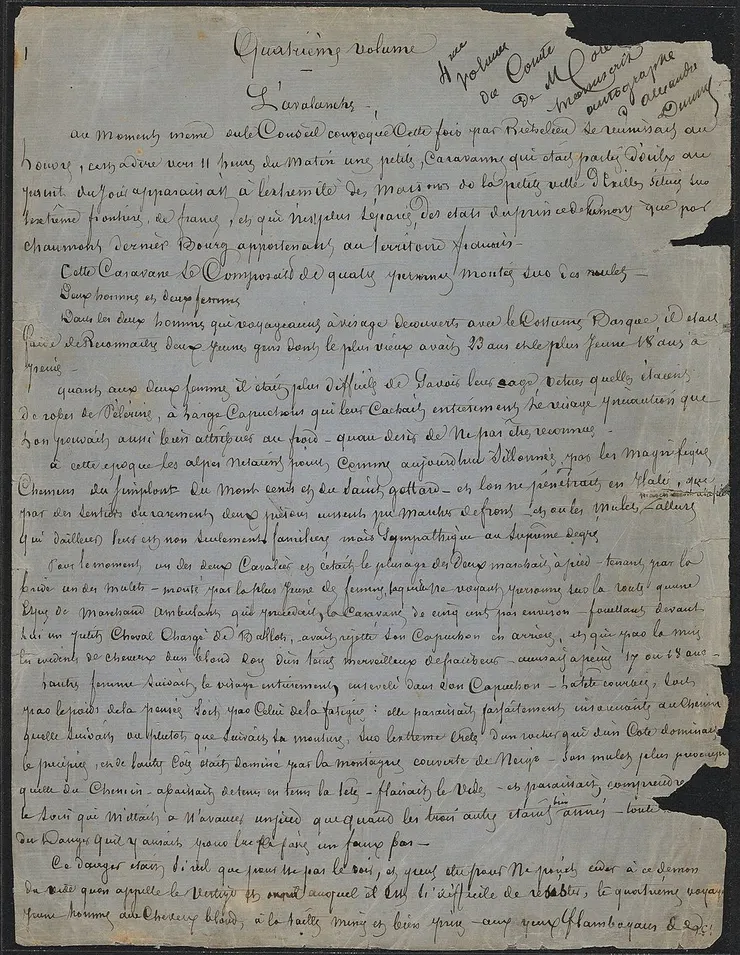 1
Quatrième volume
4me
volume
du Comte
De M
manuscrit
autographe
d'alexandre
Dumas
L'avalanche -
au moment même ou le Conseil convoqué Cette fois par Richelieu Se reunissait au
Louvre, c'est a dire vers 11 heures du Matin une petite Caravanne qui était partie d'oulx au
point du jour apparaissait à l'extremité des Maisons de la petite ville d'Exilles Située sur
l'extrême frontiere de france, et qui n'est plus Séparée des états du prince de Piemont que par
chaumont dernier Bourg appartenant au territoire français -
Cette Caravane Se Composait de quatre personnes montées sur des mulets -
Deux hommes et deux femmes
Dans les deux hommes qui voyageaient à visage decouvert avec le Costume Basque, il était
facile de Reconnaitre deux jeunes gens dont le plus vieux avait 23 ans et le plus Jeune 18 ans à
peine -
quant aux deux femmes il était plus difficile de Savoir leur age vetues quelles étaient
de robes de Pélérine, à Large Capuchons qui leur Cachait entièrement Le visage precaution que
Lon pouvait aussi bien attribuer au froid - quau desir de Ne pas être reconnue -
à cette époque les alpes netaient point Comme aujourdhui Sillonnées par les Magnifique
Chemins du Simplont du Mont cenis et du Saint gottard - et lon ne pénétrait en Italie, que
par des Sentiers ou rarement deux piétons eussent pu Marcher de front - et ou les Mulets Lallure
qui dailleurs leur est non seulement familiere mais Sympathique au Suprême degré
Pour le moment un des deux Cavaliers et c'était le plus age des Deux marchait à pied - tenant par la
bride un des mulets - monté par la plus Jeune des femmes, laquelle ne voyant personne sur la route quune
Espece de Marchand Ambulant qui precedait la Caravane de cinq cent pas environ - fouettant devant
lui un petit Cheval Chargé de Ballots, avait rejetté Son Capuchon en arrière, et qui par la mise
en evidence de cheveux dun blond doré dun teint merveilleux de fraicheur - accusait à peine 17 ou 18 ans -
Lautre femme Suivait le visage entièrement enseveli dans Son Capuchon - la tete courbée, Soit
par le poids de la pensée Soit par Celui de la fatigue : elle paraissait parfaitement insouciante au Chemin
quelle Suivait ou plutot que Suivait Sa monture, Sur lextreme crete dun rocher qui dun Coté dominait
le precipice, et de lautre Coté était dominé par la montagne couverte de Neige - Son mulet plus preoccupé
quelle du Chemin - abaissait de tems en tems la tête - flairait le Vide - et paraissait comprendre
le Soin qui mettait à N'avancer un pied que quand les trois autres etaient bien
du Danger quil y aurait pour lui à faire un faux pas -
Ce danger était Si reel que pour ne pas le voir, et peut etre pour Ne point ceder à ce demon
du vide quon appelle le Vertige et auquel il est Si difficile de resister, le quatrieme voyag
jeune homme aux Cheveux blonds, à la taille Mince et bien prise - aux yeux flamboyans